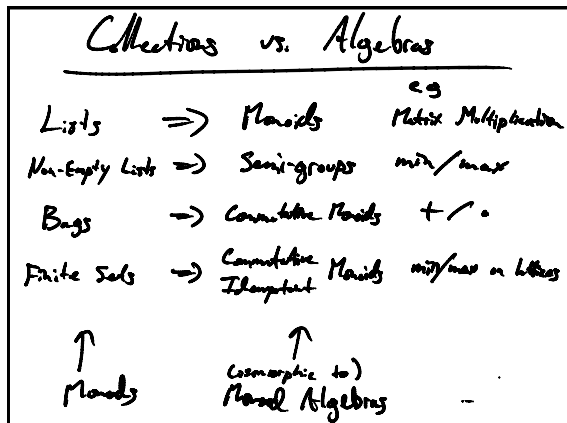 Collections vs. Algebras
eg
Lists => Monoids Matrix Multiplication
Non-Empty Lists => Semi-groups min/max
Bags => Commutative Monoids + / •
Finite Sets => Commutative Idempotent Monoids min/max on lattices
↑ ↑
(isomorphic to)
Monads Monad Algebras